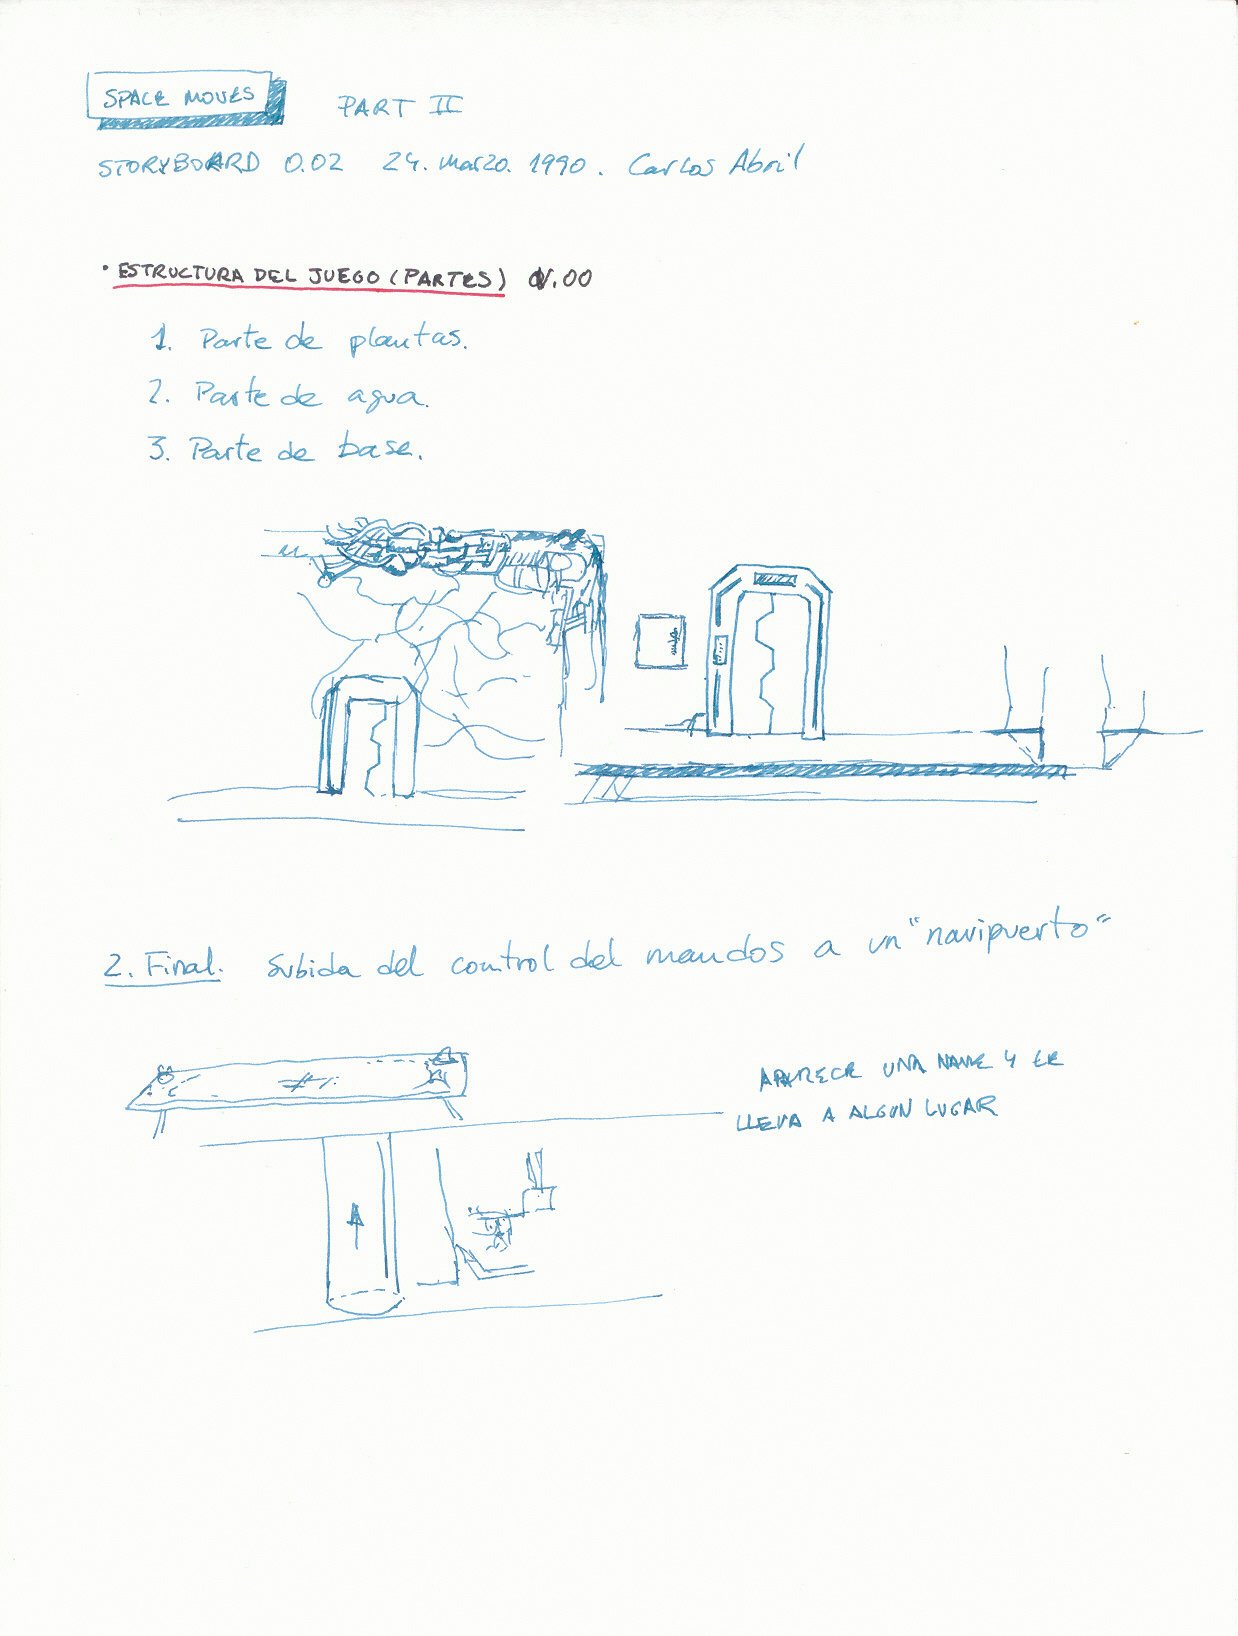 SPACE MOVES PART II
STORYBOARD 0.02 24. marzo. 1990. Carlos Abril
· ESTRUCTURA DEL JUEGO (PARTES) V.00
1. Parte de plantas.
2. Parte de agua.
3. Parte de base.
2. Final. Subida del control del mandos a un "navipuerto"
APARECE UNA NAVE Y LE
LLEVA A ALGUN LUGAR